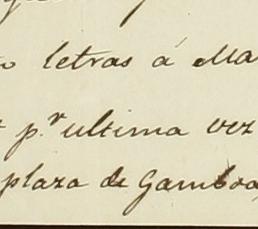 letras á Ma
p.r ultima vez
plaza de Gamboa